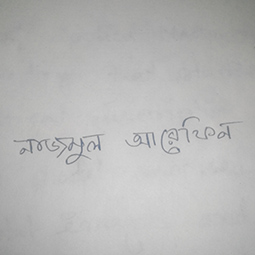 নাজমুল আরেফিন